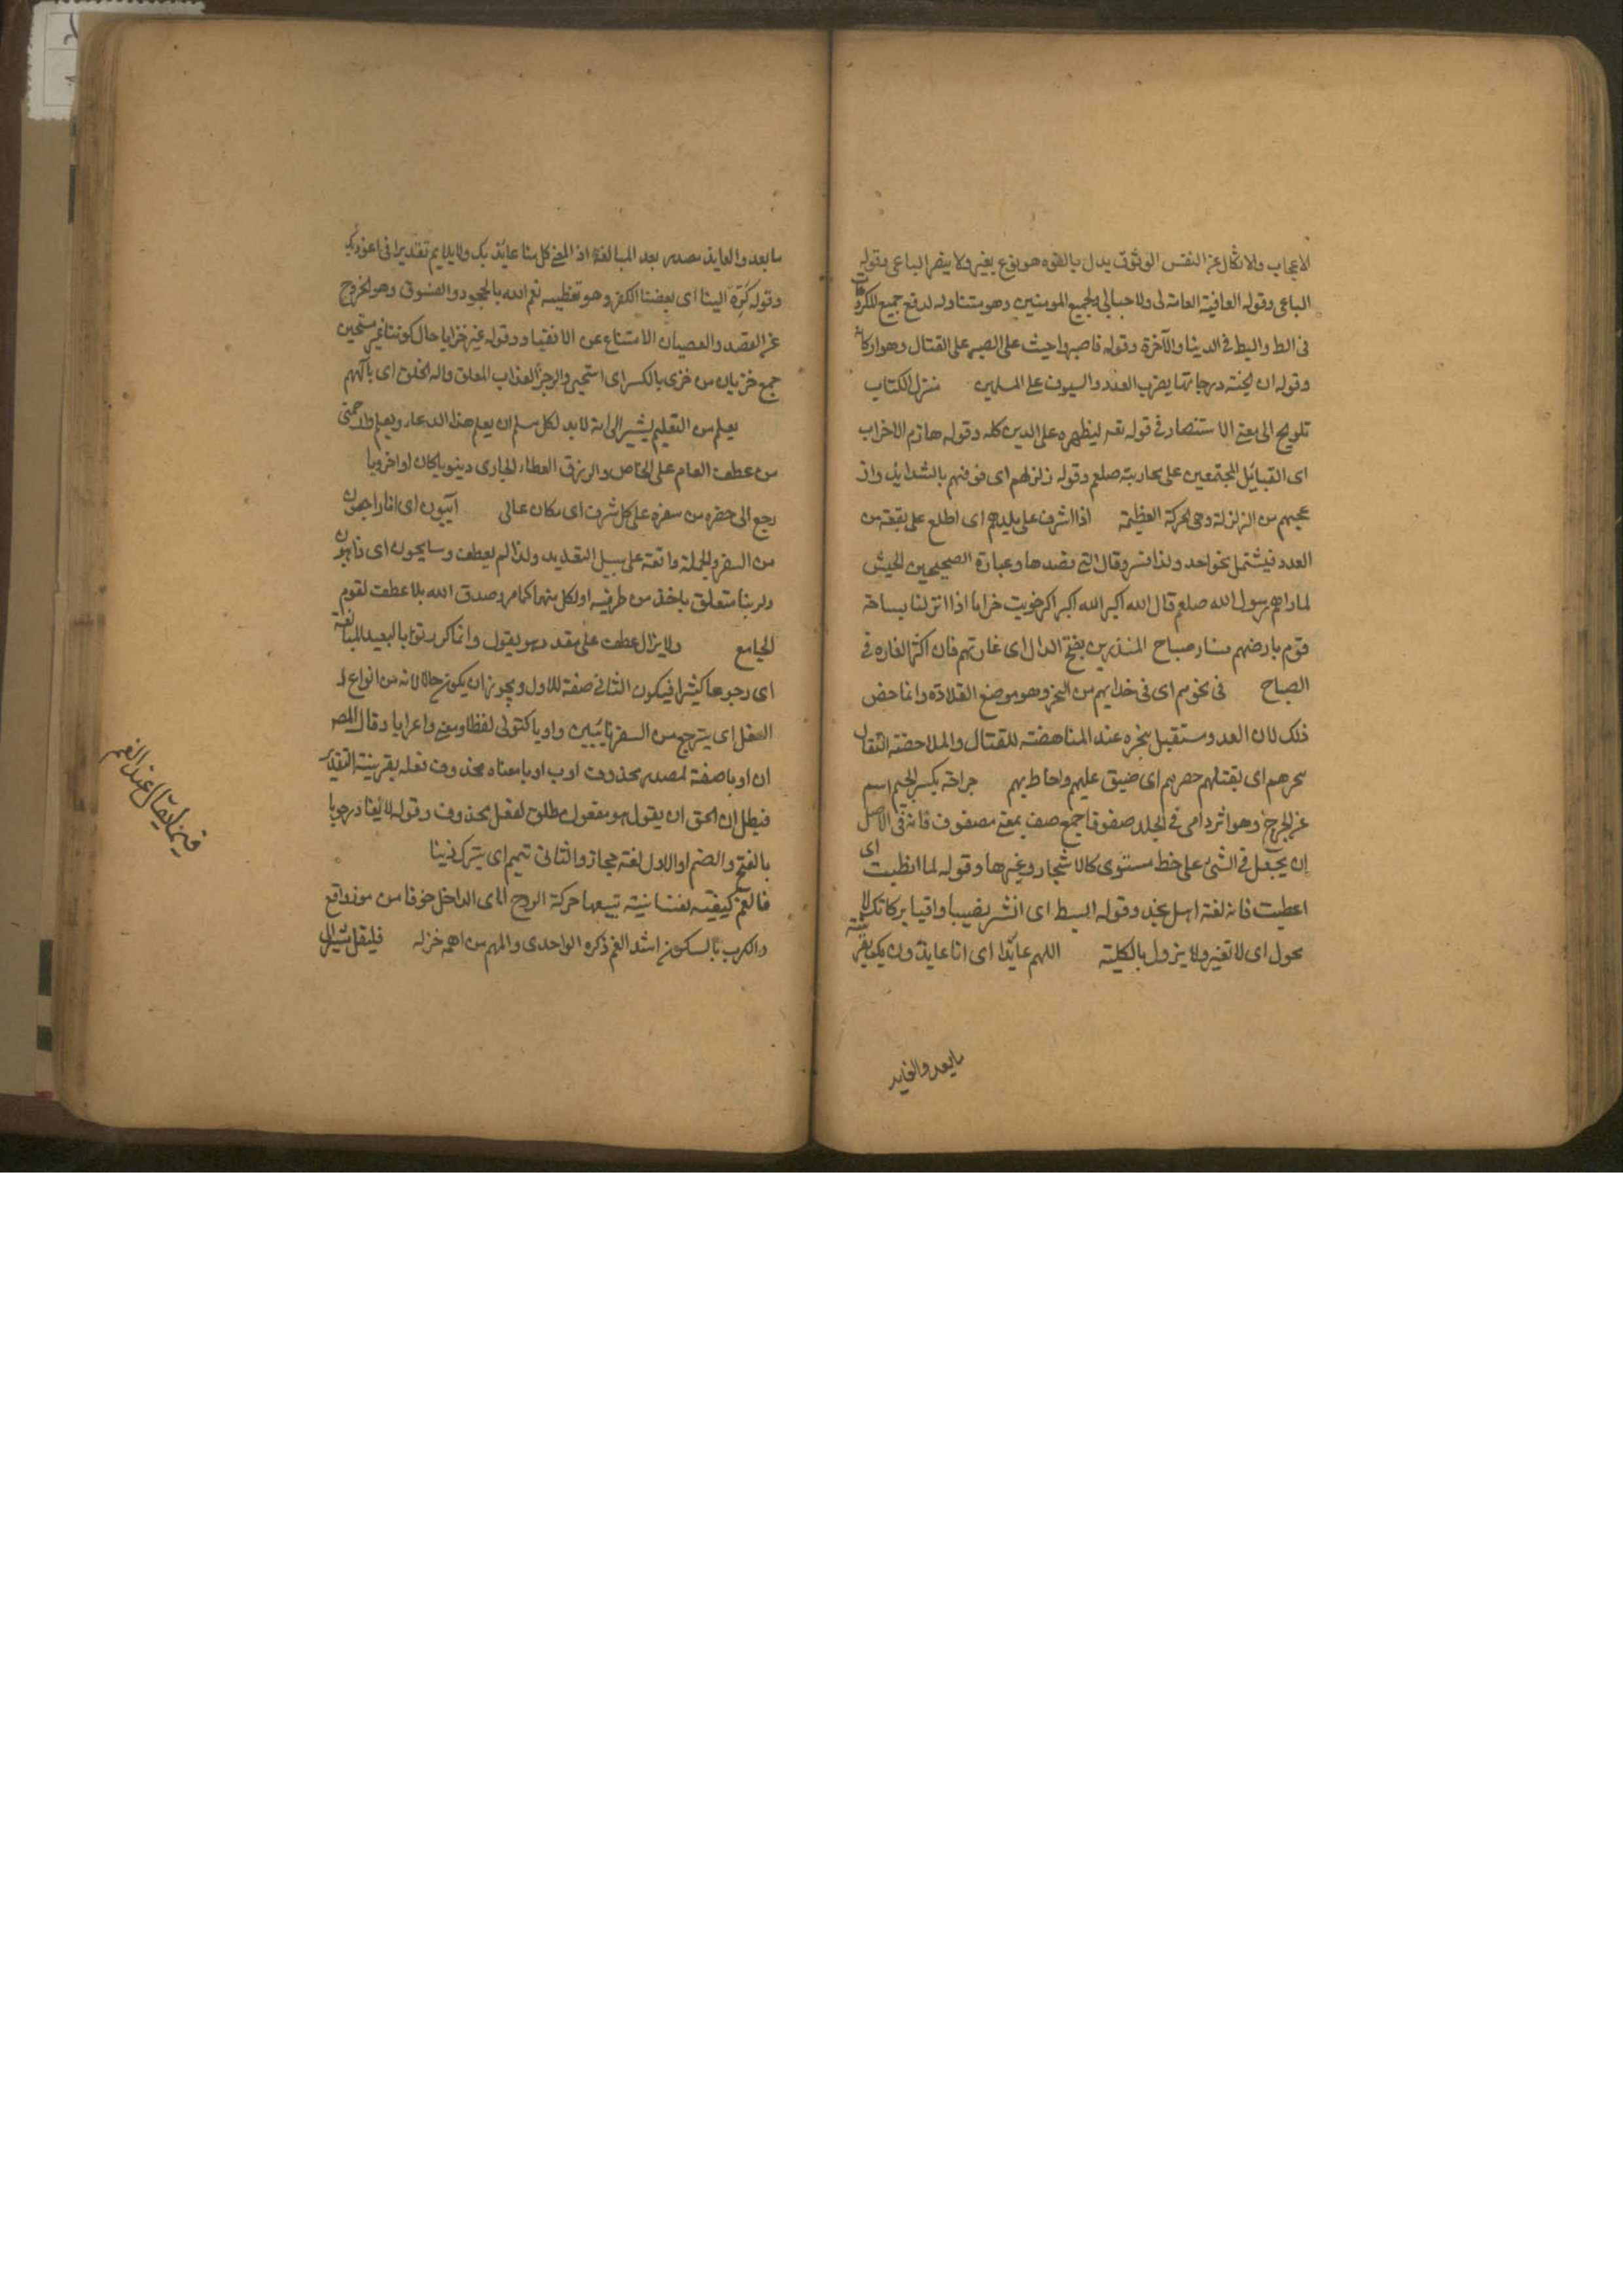 الاعجاب والاتكال عن النفس الوثوق يدل بالقوه هو نوع بغير ولا ينصر الباغى وقوله
الباغى وقوله العافية العامة لى ولاحبابى ولجميع المومنين وهو متناوله لدفع جميع المكروهات
فى الدنيا والآخرة وقوله فاصبروا حيث على الصبر على القتال وهو اركانه
وقوله ان الجنة درجاتها يضرب العدد والسيوف على المسلمين منزل الكتاب
تلويح الى معنى الاستنصار فى قوله تعه ليظهره على الدين كله وقوله هازم الاحزاب
اى القبائل المجتمعين على محاربته صلعم وقوله زلزلهم اى خوفهم بالشدايد واز
عجهم من الزلزلة وهى الحركة العظيمة اذا اشرف على بلدهم اى اطلع على بقعة من
العدد فيشتمل نحو احد ولذا فسر وقال التى قصدها وعبارة الصحيحين الجيش
لما راهم رسول الله صلعم قال الله اكبر الله اكبر خربت خرابا اذا انزلنا بساحة
قوم بارضهم فساء صباح المنذرين بفتح الدال اى غارتهم فان اكثر الغاره فى
الصباح فى نحورهم اى فى حذايهم من النحر وهو موضع القلادة وانما خص
ذلك لان العدو مستقبل بنحره عند المناهضة للقتال والملاحضة التقال
بنحرهم اى بقتلهم حصرهم اى ضيق عليهم واحاط بهم جراحة بكسر الجيم اسم
عن الجرح وهو اثر دامى فى الجلد صفوفا جمع صف بمعنى مصفوف فانه فى الاصل
ان يجعل فى الشئ على خط مستوى كالاشجار وغيرها وقوله لما انطيت اى
اعطيت فانه لغة اهل نجد وقوله ابسط اى انشر نصيبا واقيا بركاتك لا
يحول اى لا تغير ولا يزول بالكلية اللهم عائذا اى انا عايذ ون يك بقرينة
مابعد والعايد
مابعد والعايذ مصدر بعد المبالغة اذ المعنى كل منا عايذ بك ولا يلايم تقديرا فى اعوذ بك
وقوله كره الينا اى بغضنا الكفر وهو تغطية نعم الله بالجحود والفسوق وهو الخروج
عن القصد والعصيان الامتناع عن الانقياد وقوله غير خزايا حال كوننا غير مستحين
جمع خزيان من خزى بالكسر اى استحى والرجز العذاب المعلق واله الخلق اى بآلهم
يعلم من التعليم يشير الى انه لابد لكل مسلم ان يعلم هذا الدعاء ويعلم وارحمنى
من عطف العام على الخاص والرزق العطاء الجارى دينويا كان او اخرويا
رجع الى حضره من سفره على كل شرف اى مكان عالى آيبون اى انا راجعون
من السفر والجملة واقعة على سبيل التعديد ولذا لم يعطف وسايحون اى ذاهبون
ولربنا متعلق باحد من طرفيه او لكل منهما كما مر وصدق الله بلا عطف لقوم
الجامع ولا يزال عطف على مقدر وهو يقول وانما كرر توبا بالبعيد للمبالغة
اى رجوعا كثيرا فيكون الثانى صفة للاول ويجوز ان يكون حالا لانه من انواع لـ
الفعل اى يترجع من السفر تائبين واوبا كتوبى لفظا ومعنى واعرابا وقال المصـ
ان اوبا صفة لمصدر محذوف اوب اوبا معناه محذوف فعله بقرينة التقدير
فبطل ان الحق ان يقول هو مفعول مطلق لفعل محذوف وقوله لا يغادر حوبا
بالفتح والضم او الاول لغة حجاز والثانى تميم اى يترك ذنبا
فالغم كيفية نفسانية تتبعها حركة الروح الى الداخل خوفا من موذ واقع
والكرب بالسكون اشد الغم ذكره الواحدى والمهم من اهمه خزله فليقل يشير الى
فيمن يقال عند الغم